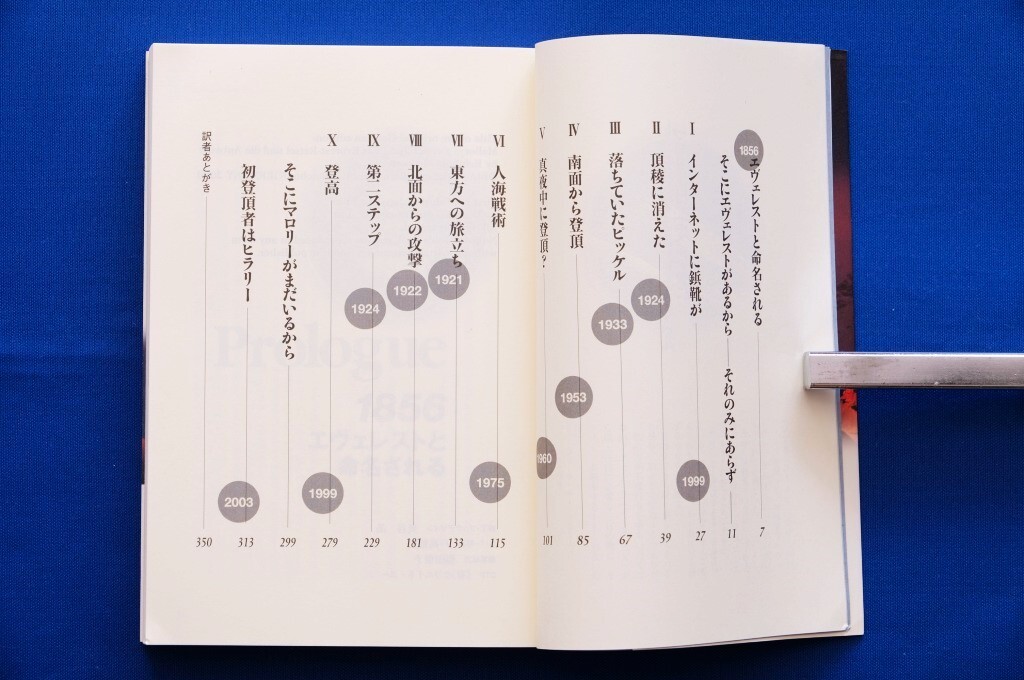 1856 エヴェレストと命名される 7
そこにエヴェレストがあるから それのみにあらず 11
Ⅰ インターネットに鋲靴が 1999 27
Ⅱ 頂稜に消えた 1924 39
Ⅲ 落ちていたピッケル 1933 67
Ⅳ 南面から登頂 1953 85
Ⅴ 真夜中に登頂? 1960 101
Ⅵ 人海戦術 1975 115
Ⅶ 東方への旅立ち 1921 133
Ⅷ 北面からの攻撃 1922 181
Ⅸ 第二ステップ 1924 229
Ⅹ 登高 1999 279
そこにマロリーがまだいるから 299
初登頂者はヒラリー 2003 313
訳者あとがき 350
Prologue
1856
エヴェレストと
命名される